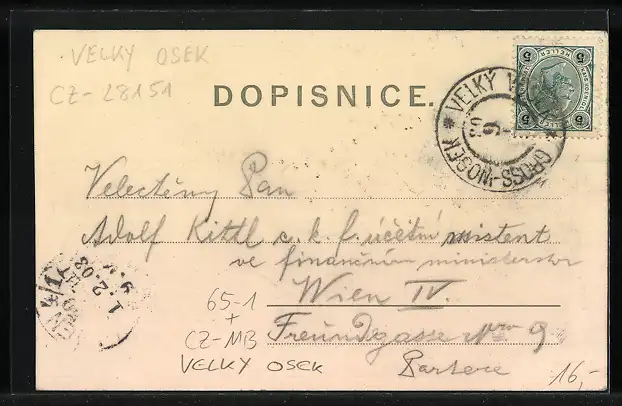 VELKÝ OSEK
CZ-28151
DOPISNICE.
VELKÝ
GROSS-WOSEK
5 HELLER 5
Velectěný Pan
Adolf Kittl c. k. f. účetní assistent
ve finančním ministerstvu
Wien IV.
Freundgasse Nro 9
Parterre
65-1
+
CZ-MB
VELKY OSEK
16,-
4/1
1.2.03